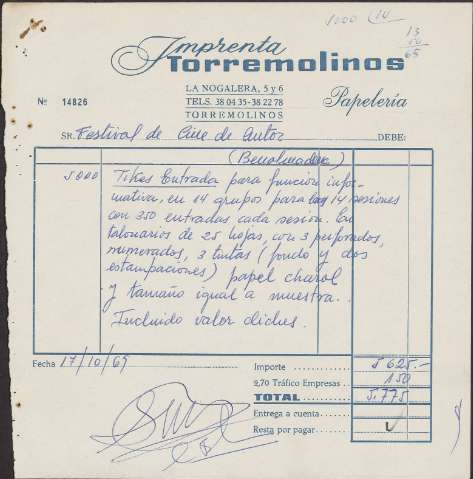 5000 14
13
50
65
Imprenta
Torremolinos
LA NOGALERA, 5 y 6
TELS. 38 04 35-38 22 78
TORREMOLINOS
Papelería
Nº 14826
SR. Festival de Cine de Autor DEBE:
(Benalmadena)
5000 Tikes Entrada para función infor-
mativa, en 14 grupos para las 14 sesiones
con 350 entradas cada sesion. En
talonarios de 25 hojas, con 3 perforados,
numerados, 3 tintas (fondo y dos
estampaciones) papel charol
y tamaño igual a muestra.
Incluido valor cliches.
Fecha 17/10/69
Importe 5625.-
2,70 Tráfico Empresas 150
TOTAL 5.775
Entrega a cuenta
Resta por pagar